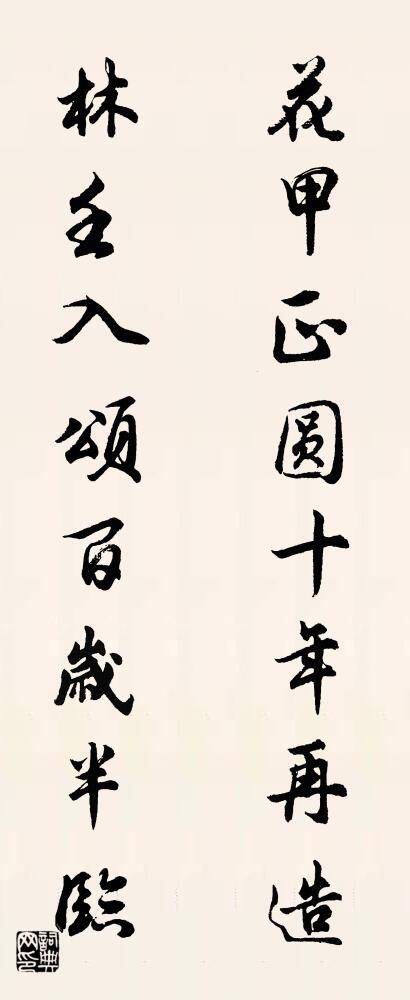 花甲正圆十年再造
林壬入頌百歲半臨
詞典网印